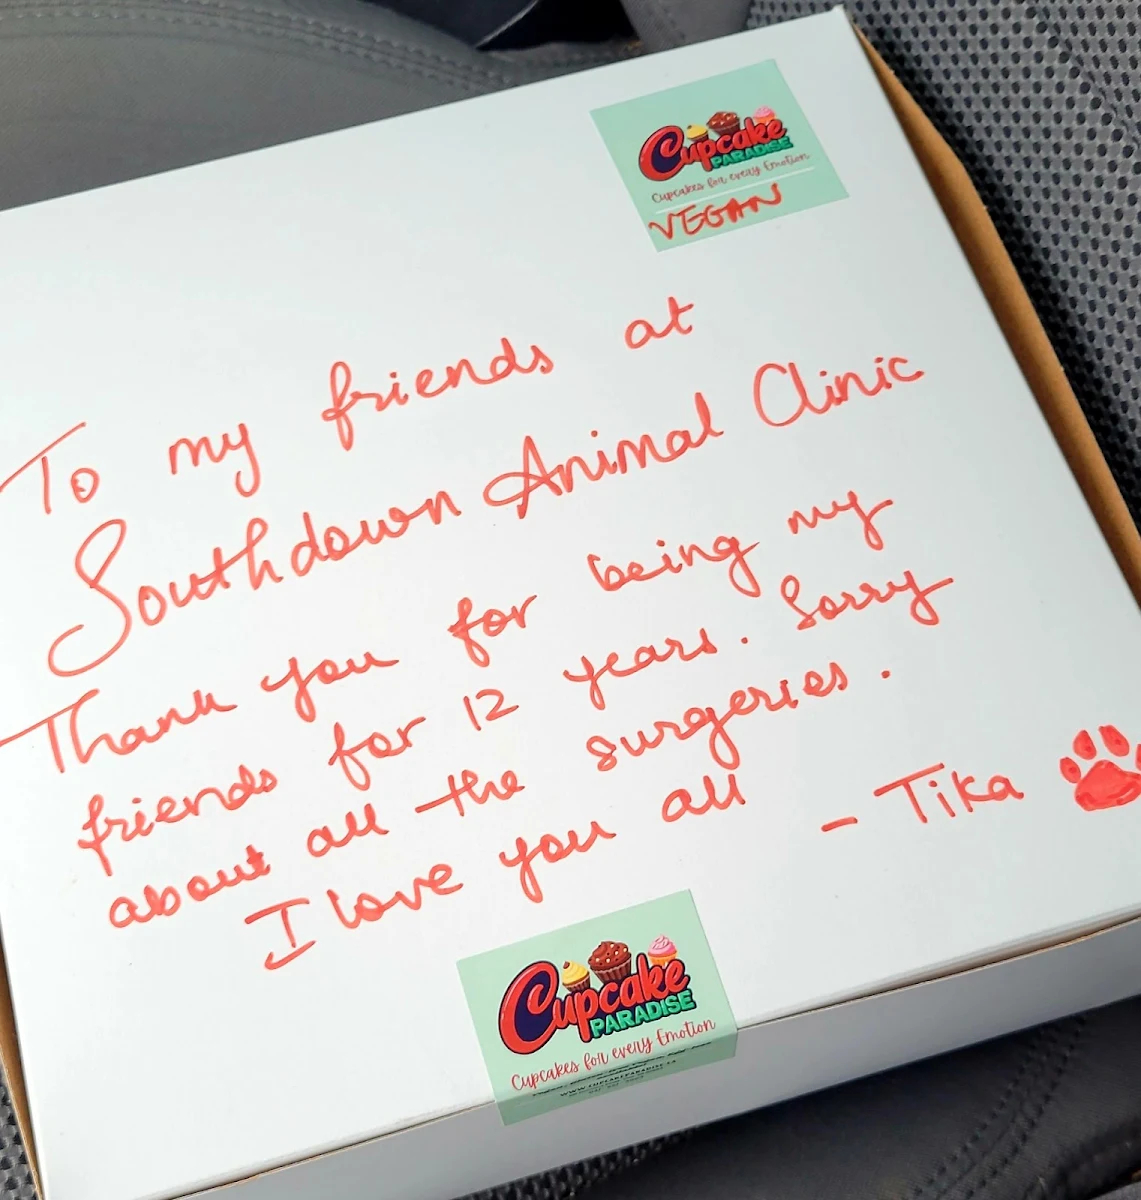 Cupcake
PARADISE
Cupcakes for every Emotion
VEGAN
To my friends at
Southdown Animal Clinic
Thank you for being my
friends for 12 years. Sorry
about all the surgeries.
I love you all
- Tika
Cupcake
PARADISE
Cupcakes for every Emotion
WWW.CUPCAKEPARADISE.CA